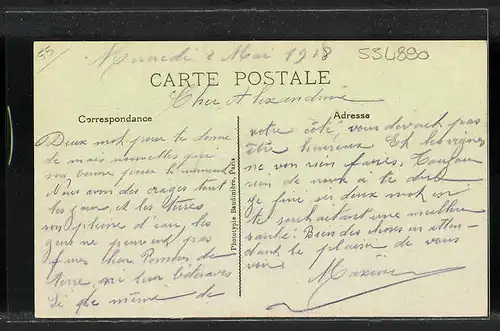 55
534890
Mercredi 8 Mai 1918
CARTE POSTALE
Cher Alexandrine
Correspondance
Deux mot pour te donne
de mais nouvelles qui
son bonne pour le moment
Nous avon des orages tout
les jour, et les terres
son pleine d'eau, les
gens ne peuvent pas
faires leur Pommes de
terre, ni leur betteraves
Si que même de
Phototypie Baudinière, Paris
Adresse
votre côté, vous devait pas
être heureux. Et les vignes
ne von rien faires, Toujour
rien de neuf à te dire
je fini ses deux mot en
te souhaitant une meilleur
santé. Bien des choses en atten-
dant le plaisir de vous
voir
Maxime